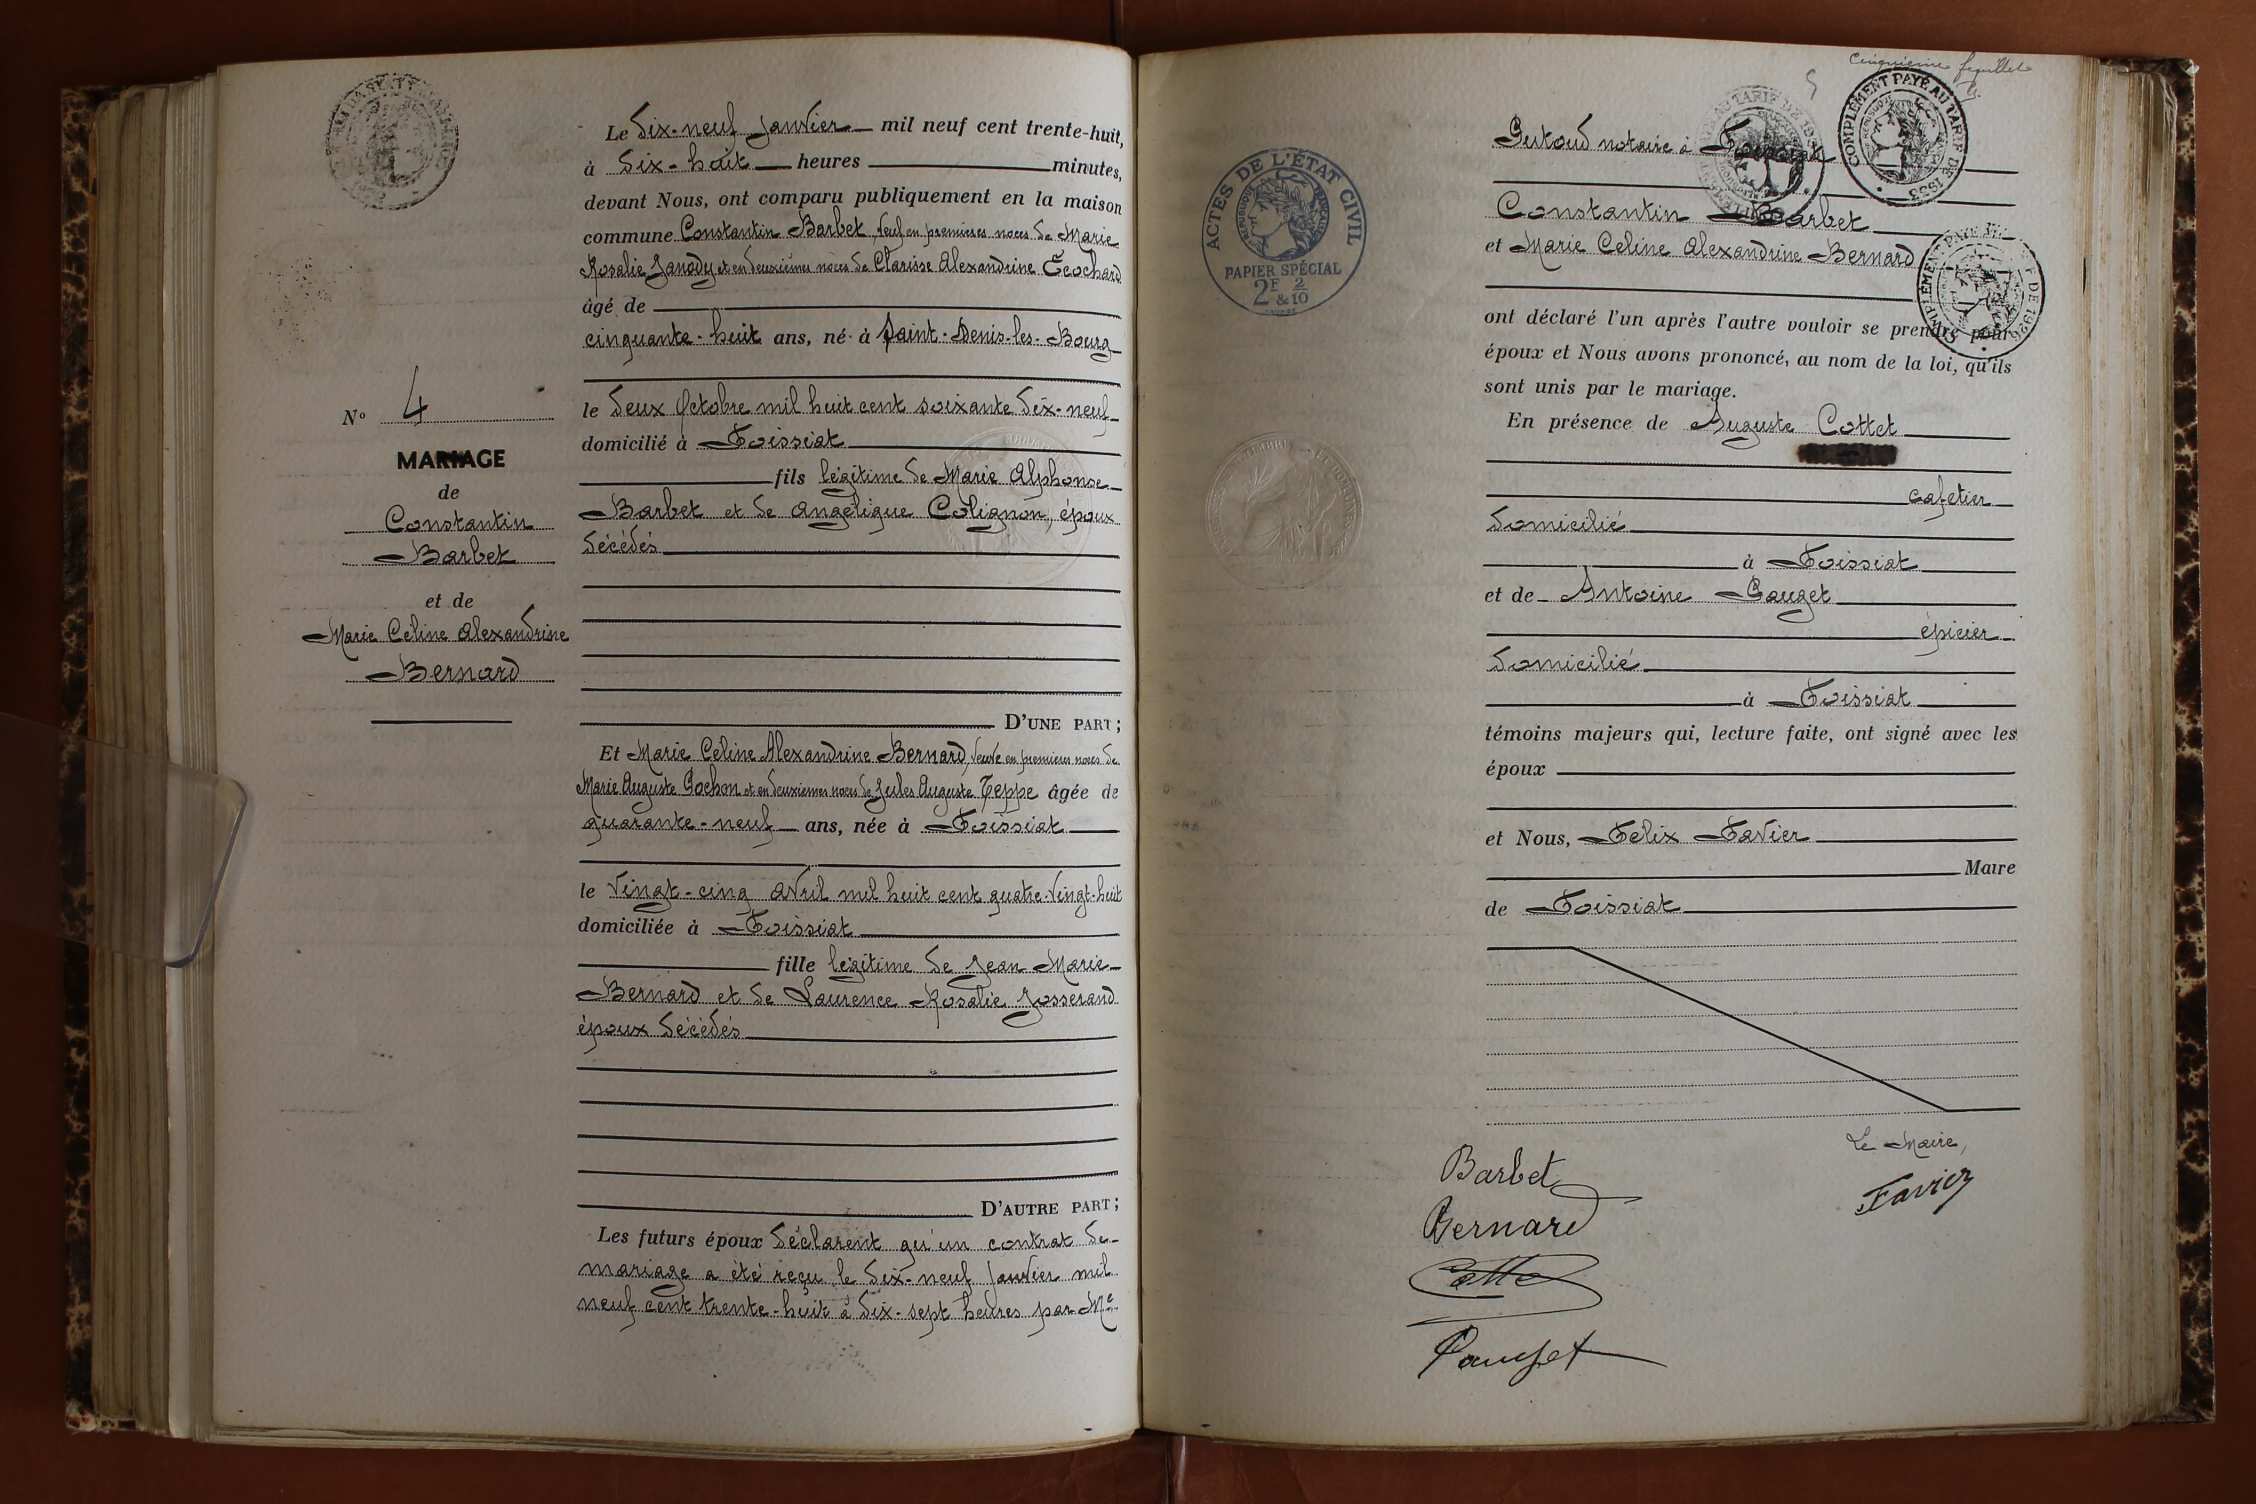 Le dix-neuf janvier mil neuf cent trente-huit,
à dix-huit heures minutes,
devant Nous, ont comparu publiquement en la maison
commune Constantin Barbet, veuf en premières noces de Marie
Rosalie Janody et en deuxièmes noces de Clarisse Alexandrine Ecochard
âgé de
cinquante-huit ans, né à Saint-Denis-les-Bourg
le deux octobre mil huit cent soixante dix-neuf
domicilié à Foissiat
fils légitime de Marie Alphonse
Barbet et de Angélique Colignon, époux
décédés
D'UNE PART;
Et Marie Céline Alexandrine Bernard, veuve en premières noces de
Marie Auguste Cochon et en deuxièmes noces de Jules Auguste Teppe âgée de
quarante-neuf ans, née à Foissiat
le vingt-cinq avril mil huit cent quatre-vingt-huit
domiciliée à Foissiat
fille légitime de Jean Marie
Bernard et de Laurence Rosalie Josserand
époux décédés
D'AUTRE PART;
Les futurs époux déclarent qu'un contrat de
mariage a été reçu le dix-neuf janvier mil
neuf cent trente-huit à dix-sept heures par Me
N° 4
MARIAGE
de
Constantin
Barbet
et de
Marie Celine Alexandrine
Bernard
Cinquième feuillet
5
notaire à Foissiat
COMPLÉMENT PAYÉ AU TARIF DE 1933
ACTES DE L'ÉTAT CIVIL
RÉPUBLIQUE FRANÇAISE
PAPIER SPÉCIAL
2F & 2/10
Constantin Barbet
et Marie Celine Alexandrine Bernard
ont déclaré l'un après l'autre vouloir se prendre pour
époux et Nous avons prononcé, au nom de la loi, qu'ils
sont unis par le mariage.
En présence de Auguste Cottet
cafetier
domicilié
à Foissiat
et de Antoine Pauget
épicier
domicilié
à Foissiat
témoins majeurs qui, lecture faite, ont signé avec les
époux
et Nous, Felix Favier
Maire
de Foissiat
Le Maire,
Barbet
Favier
Bernard
Cottet
Pauget